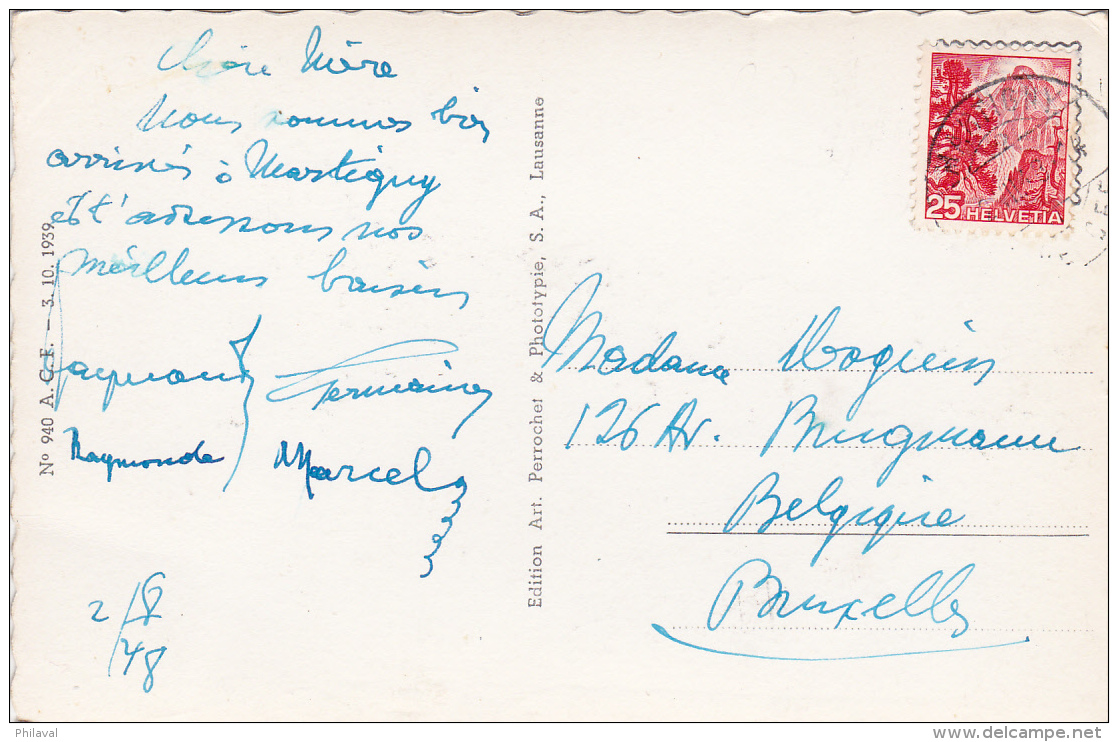 Chère Mère
Nous sommes bien
arrivés à Martigny
et t'adressons nos
meilleurs baisers
Germaine
Raymonde
Marcel
2/8/48
No 940 A. C. F. — 3. 10. 1939
Edition Art. Perrochet & Phototypie, S. A., Lausanne
25 HELVETIA
Madame
126 Av. Brugmann
Belgique
Bruxelles
Philaval
www.delcampe.net